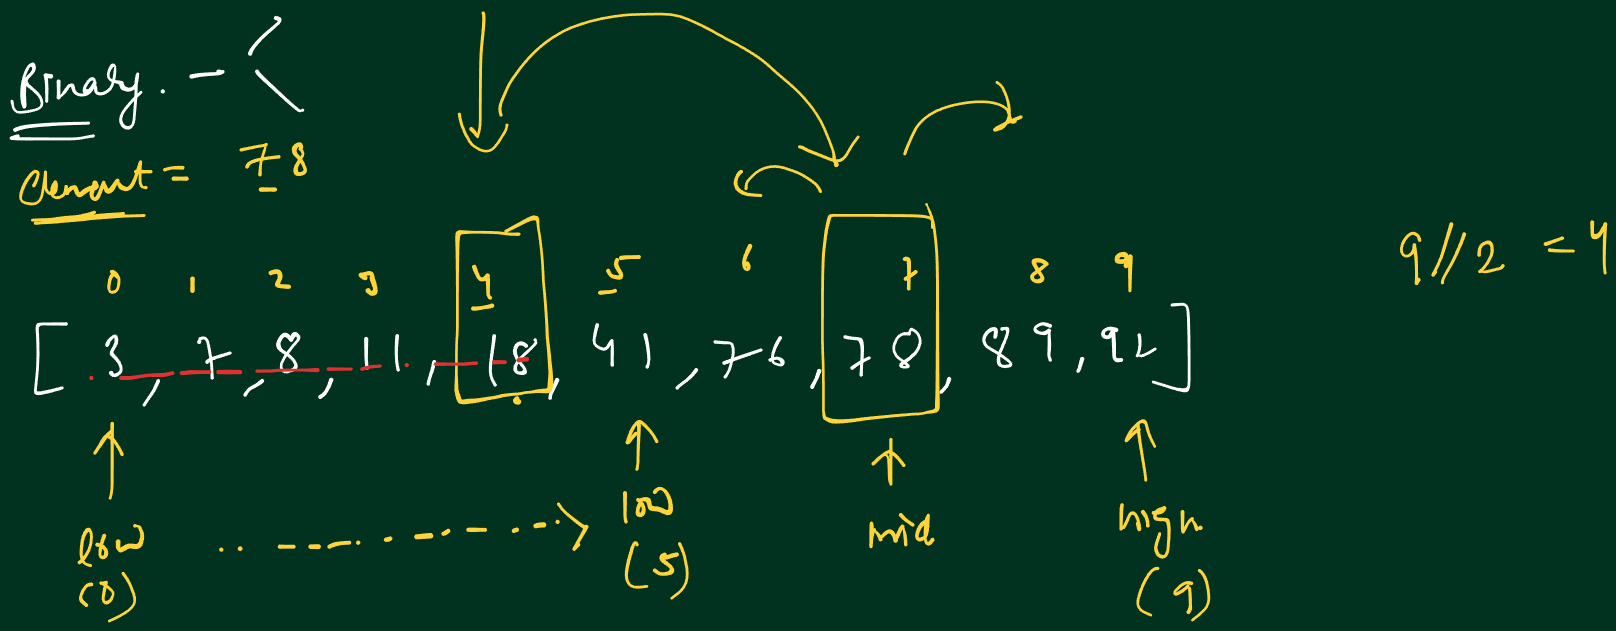 Binary. -
Element = 78
0 1 2 3 4 5 6 7 8 9
9//2 = 4
[ 3, 7, 8, 11, 18, 41, 76, 78, 89, 92 ]
low low mid high
(0) (5) (9)